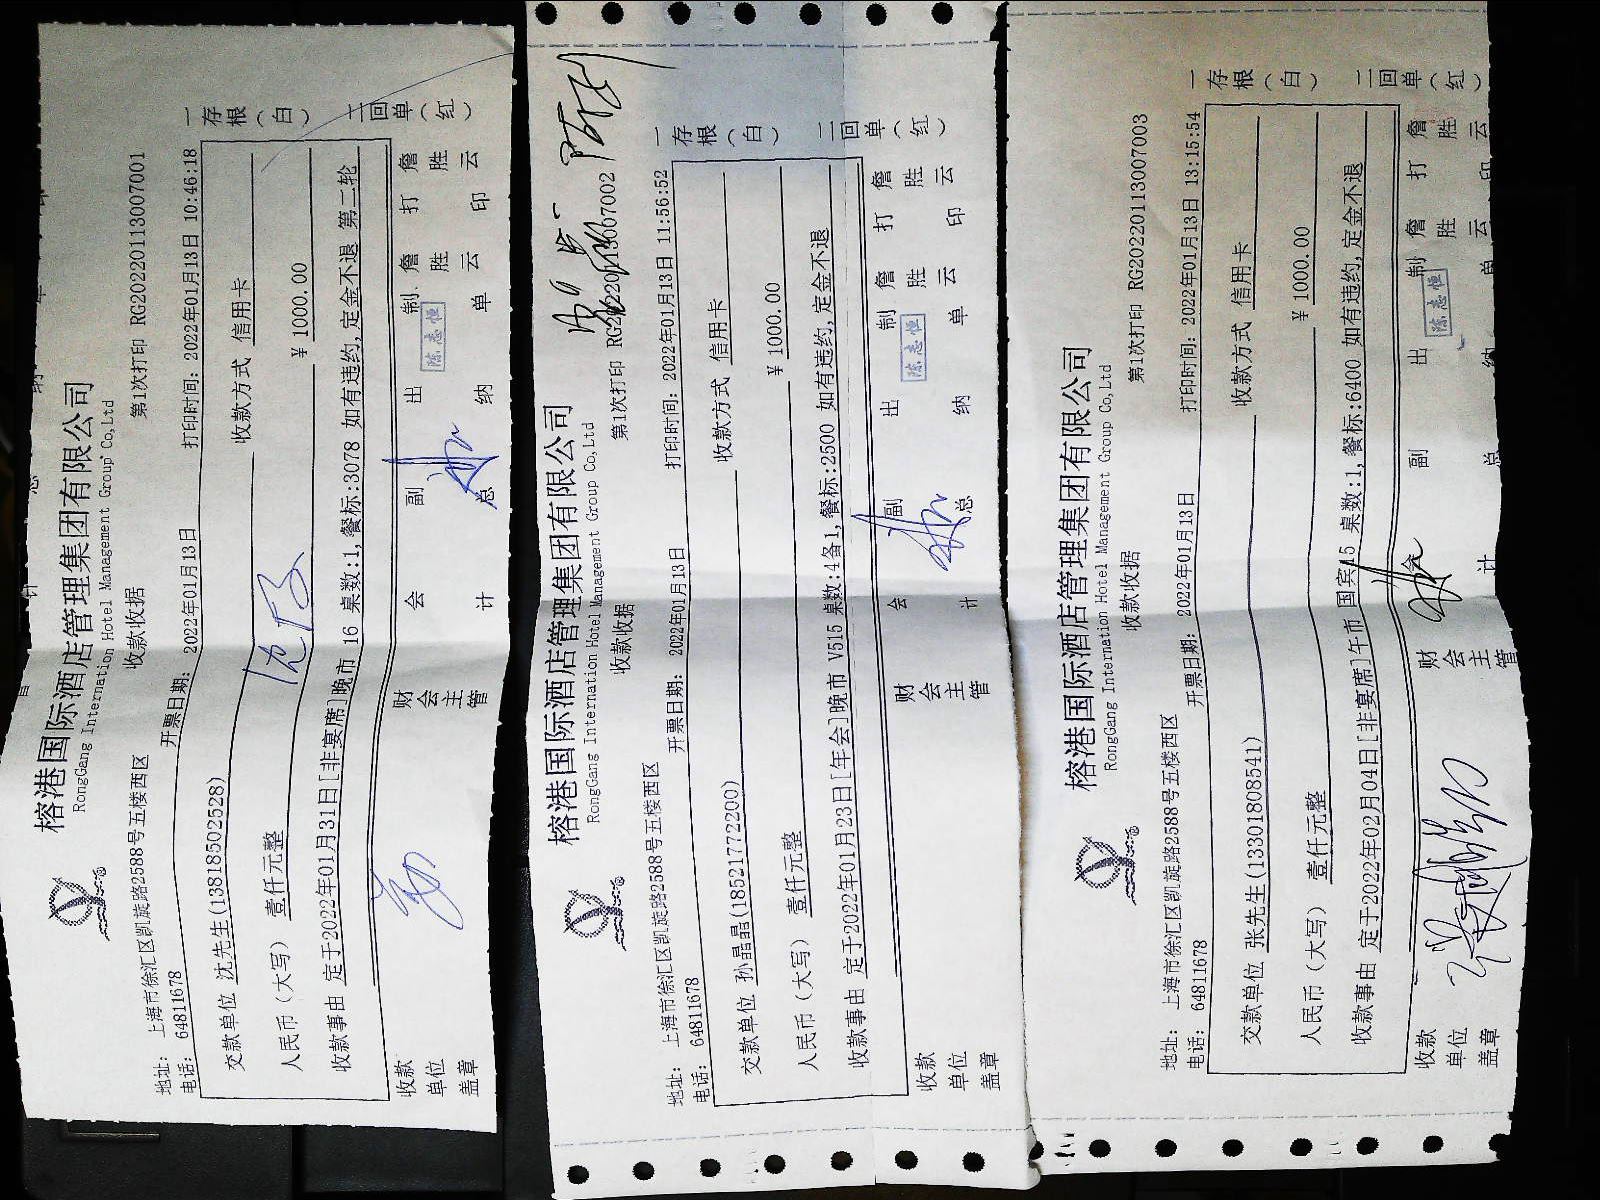 榕港国际酒店管理集团有限公司
RongGang Internation Hotel Management Group Co,Ltd
收款收据
第1次打印 RG20220113007001
地址: 上海市徐汇区凯旋路2588号五楼西区
电话: 64811678
开票日期: 2022年01月13日
打印时间: 2022年01月13日 10:46:18
交款单位 沈先生(13818502528)
收款方式 信用卡
人民币(大写) 壹仟元整
¥ 1000.00
收款事由 定于2022年01月31日[非宴席]晚市 16 桌数:1,餐标:3078 如有违约,定金不退 第二轮
一存根(白) 二回单(红)
收款单位盖章
财会主管
会计
副总
出纳
陈志恒
制单 詹胜云
打印 詹胜云
榕港国际酒店管理集团有限公司
RongGang Internation Hotel Management Group Co,Ltd
收款收据
第1次打印 RG20220113007002
地址: 上海市徐汇区凯旋路2588号五楼西区
电话: 64811678
开票日期: 2022年01月13日
打印时间: 2022年01月13日 11:56:52
交款单位 孙晶晶(18521772200)
收款方式 信用卡
人民币(大写) 壹仟元整
¥ 1000.00
收款事由 定于2022年01月23日[年会]晚市 V515 桌数:4备1,餐标:2500 如有违约,定金不退
一存根(白) 二回单(红)
收款单位盖章
财会主管
会计
副总
出纳
陈志恒
制单 詹胜云
打印 詹胜云
榕港国际酒店管理集团有限公司
RongGang Internation Hotel Management Group Co,Ltd
收款收据
第1次打印 RG20220113007003
地址: 上海市徐汇区凯旋路2588号五楼西区
电话: 64811678
开票日期: 2022年01月13日
打印时间: 2022年01月13日 13:15:54
交款单位 张先生(13301808541)
收款方式 信用卡
人民币(大写) 壹仟元整
¥ 1000.00
收款事由 定于2022年02月04日[非宴席]午市 国宾15 桌数:1,餐标:6400 如有违约,定金不退
一存根(白) 二回单(红)
收款单位盖章
财会主管
会计
副总
出纳
陈志恒
制单 詹胜云
打印 詹胜云